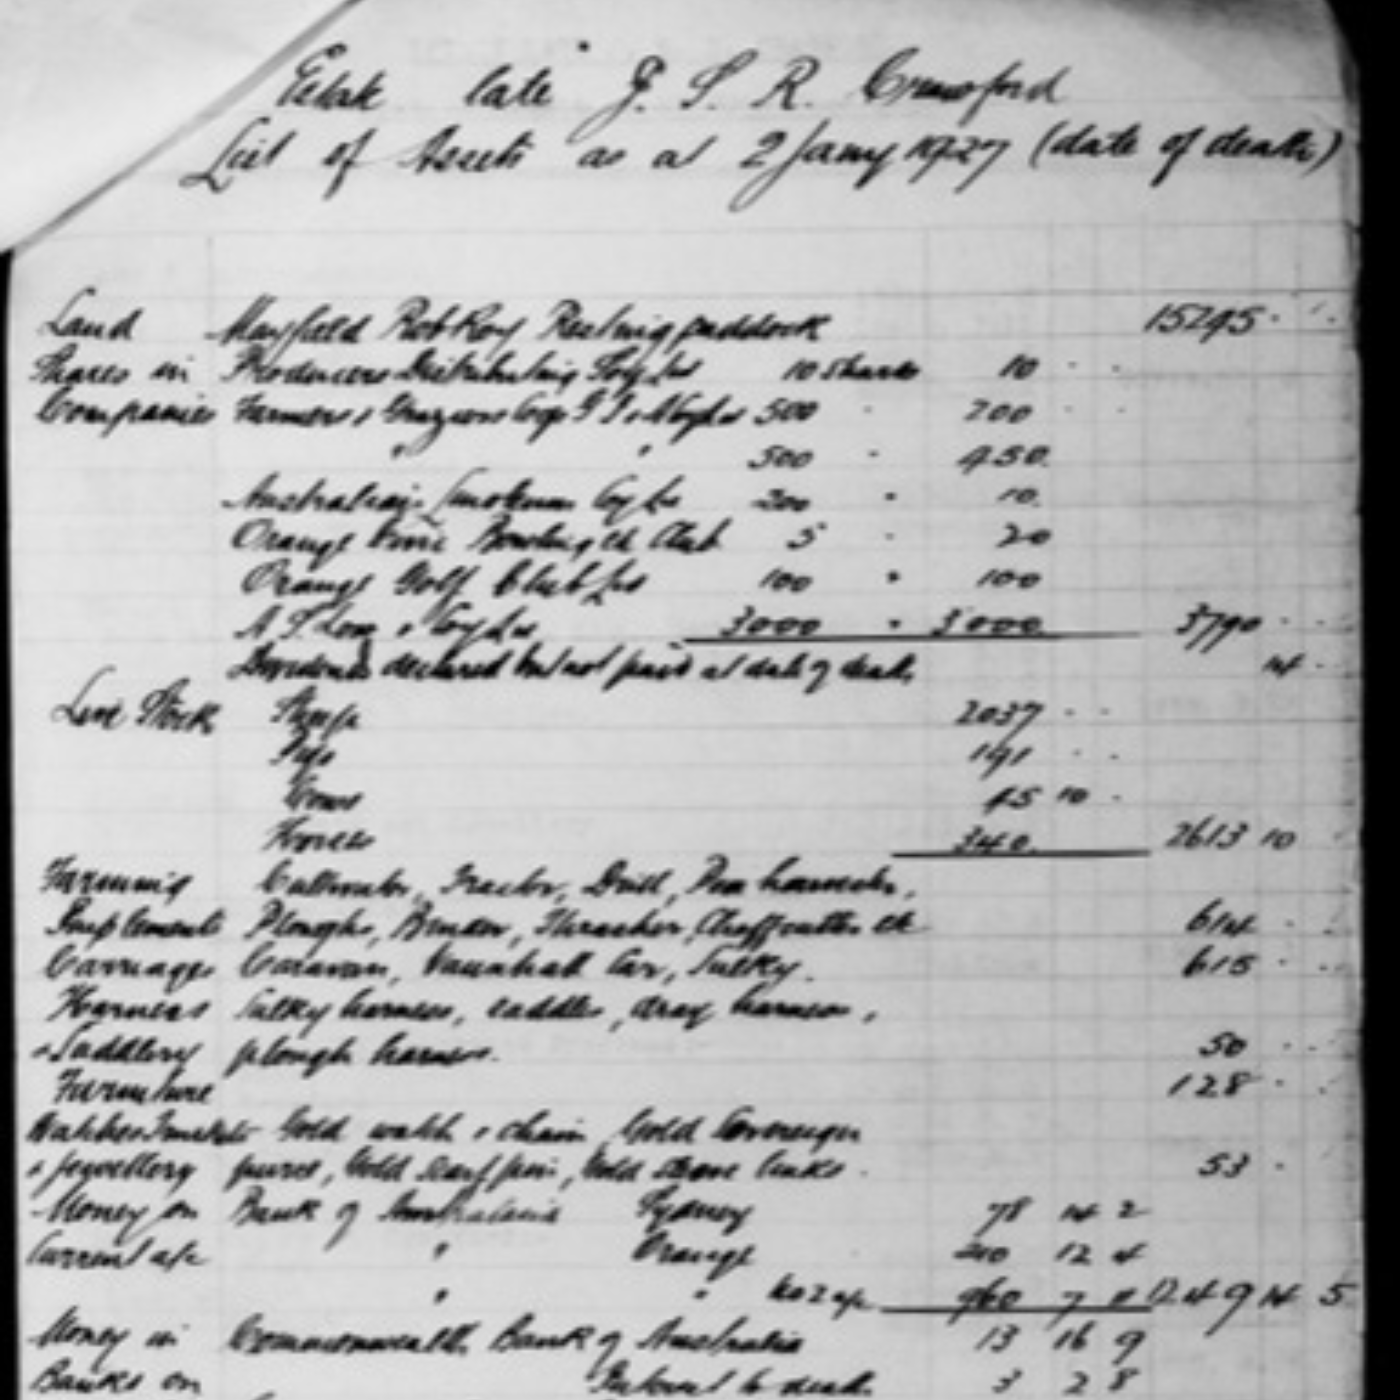 Estate late J. S. R. Crawford
List of Assets as at 2 Jany 1927 (date of death)
Land Mayfield Rob Roy Resting paddock 15295
Shares in Producers Distributing Soc Ltd 10 Shares 10
Companies Farmers & Graziers Coop Ltd 500 200
" " 500 450
Australian Coy Ltd 200 " 10
Orange Bowling Club 5 20
Orange Golf Club Ltd 100 " 100
& Coy Ltd 3000 " 3000 3790
Dividends declared but not paid at date of death 14
Live Stock Sheep 2037
Pigs 191
Cows 45 10
Horses 340 2613 10
Farming Cultivator, Tractor, Drill, Pea harvester,
Implements Ploughs, Binder, Thrasher, Chaffcutter etc 614
Carriages Caravan, Vauxhall Car, Sulky. 615
Harness Sulky harness, saddles, dray harness,
& Saddlery plough harness. 50
Furniture 128
Watches Trinkets Gold watch & chain, Gold Sovereign
& jewellery purse, Gold scarf pin, Gold sleeve links. 53
Money on Bank of Australasia Sydney 78 14 2
Current a/c " Orange 210 12 4
" " No 2 a/c 960 7 11 1249 14 5
Money in Commonwealth Bank of Australia 13 16 9
Banks on Interest to death 3 2 8